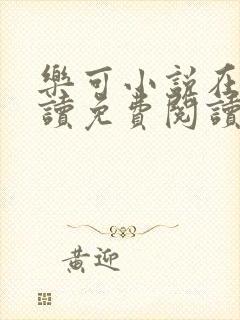 樂可小說在
讀免費閱讀
黃迎